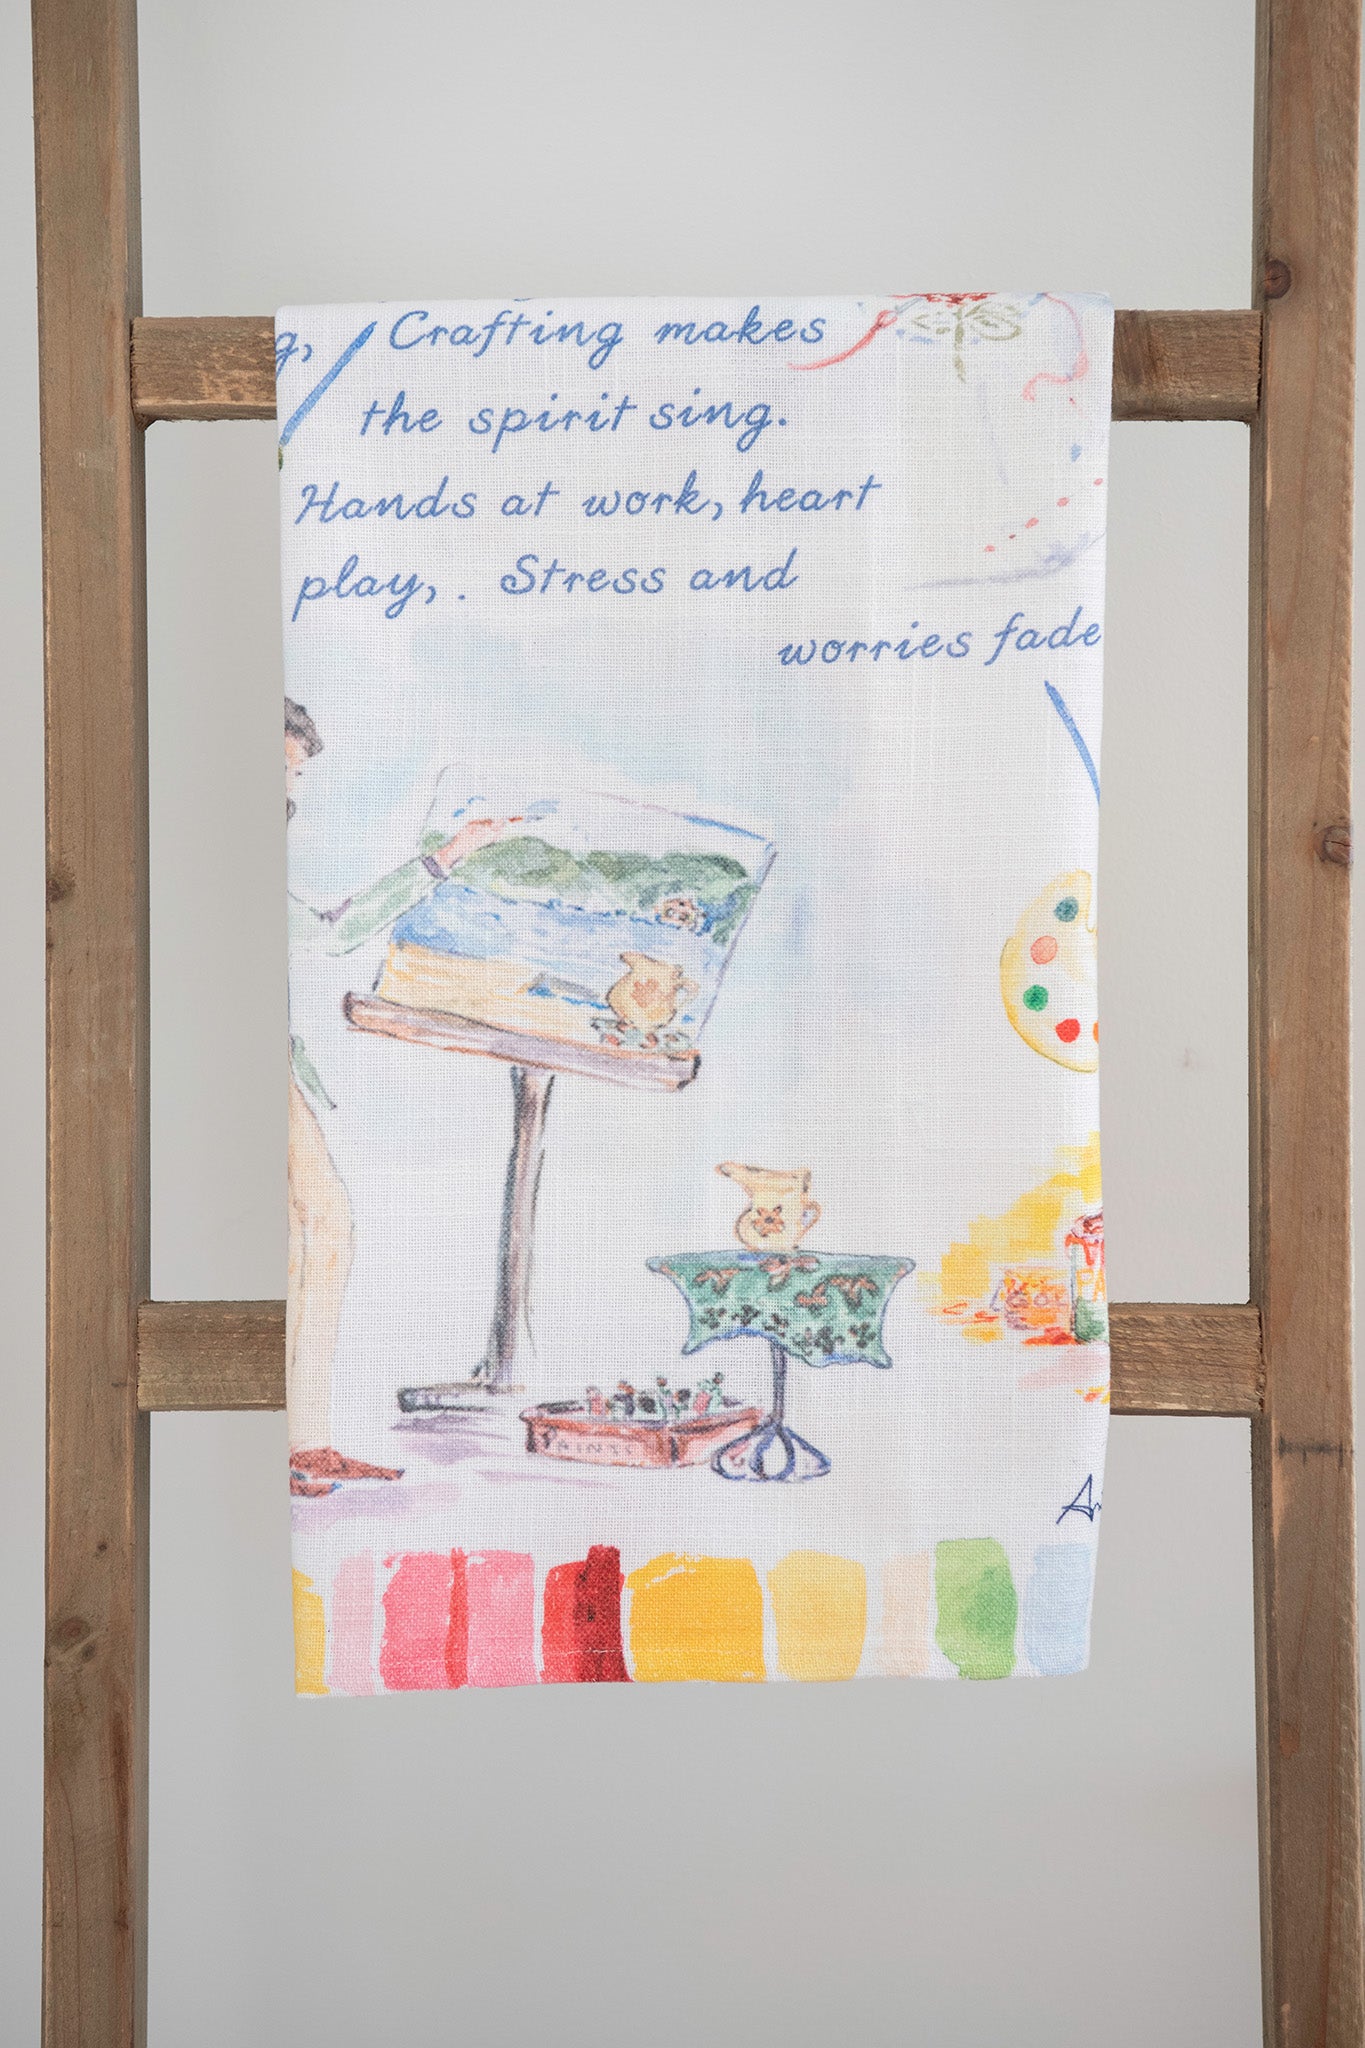 g, Crafting makes
the spirit sing.
Hands at work, heart
play, . Stress and
worries fade
PAINTS